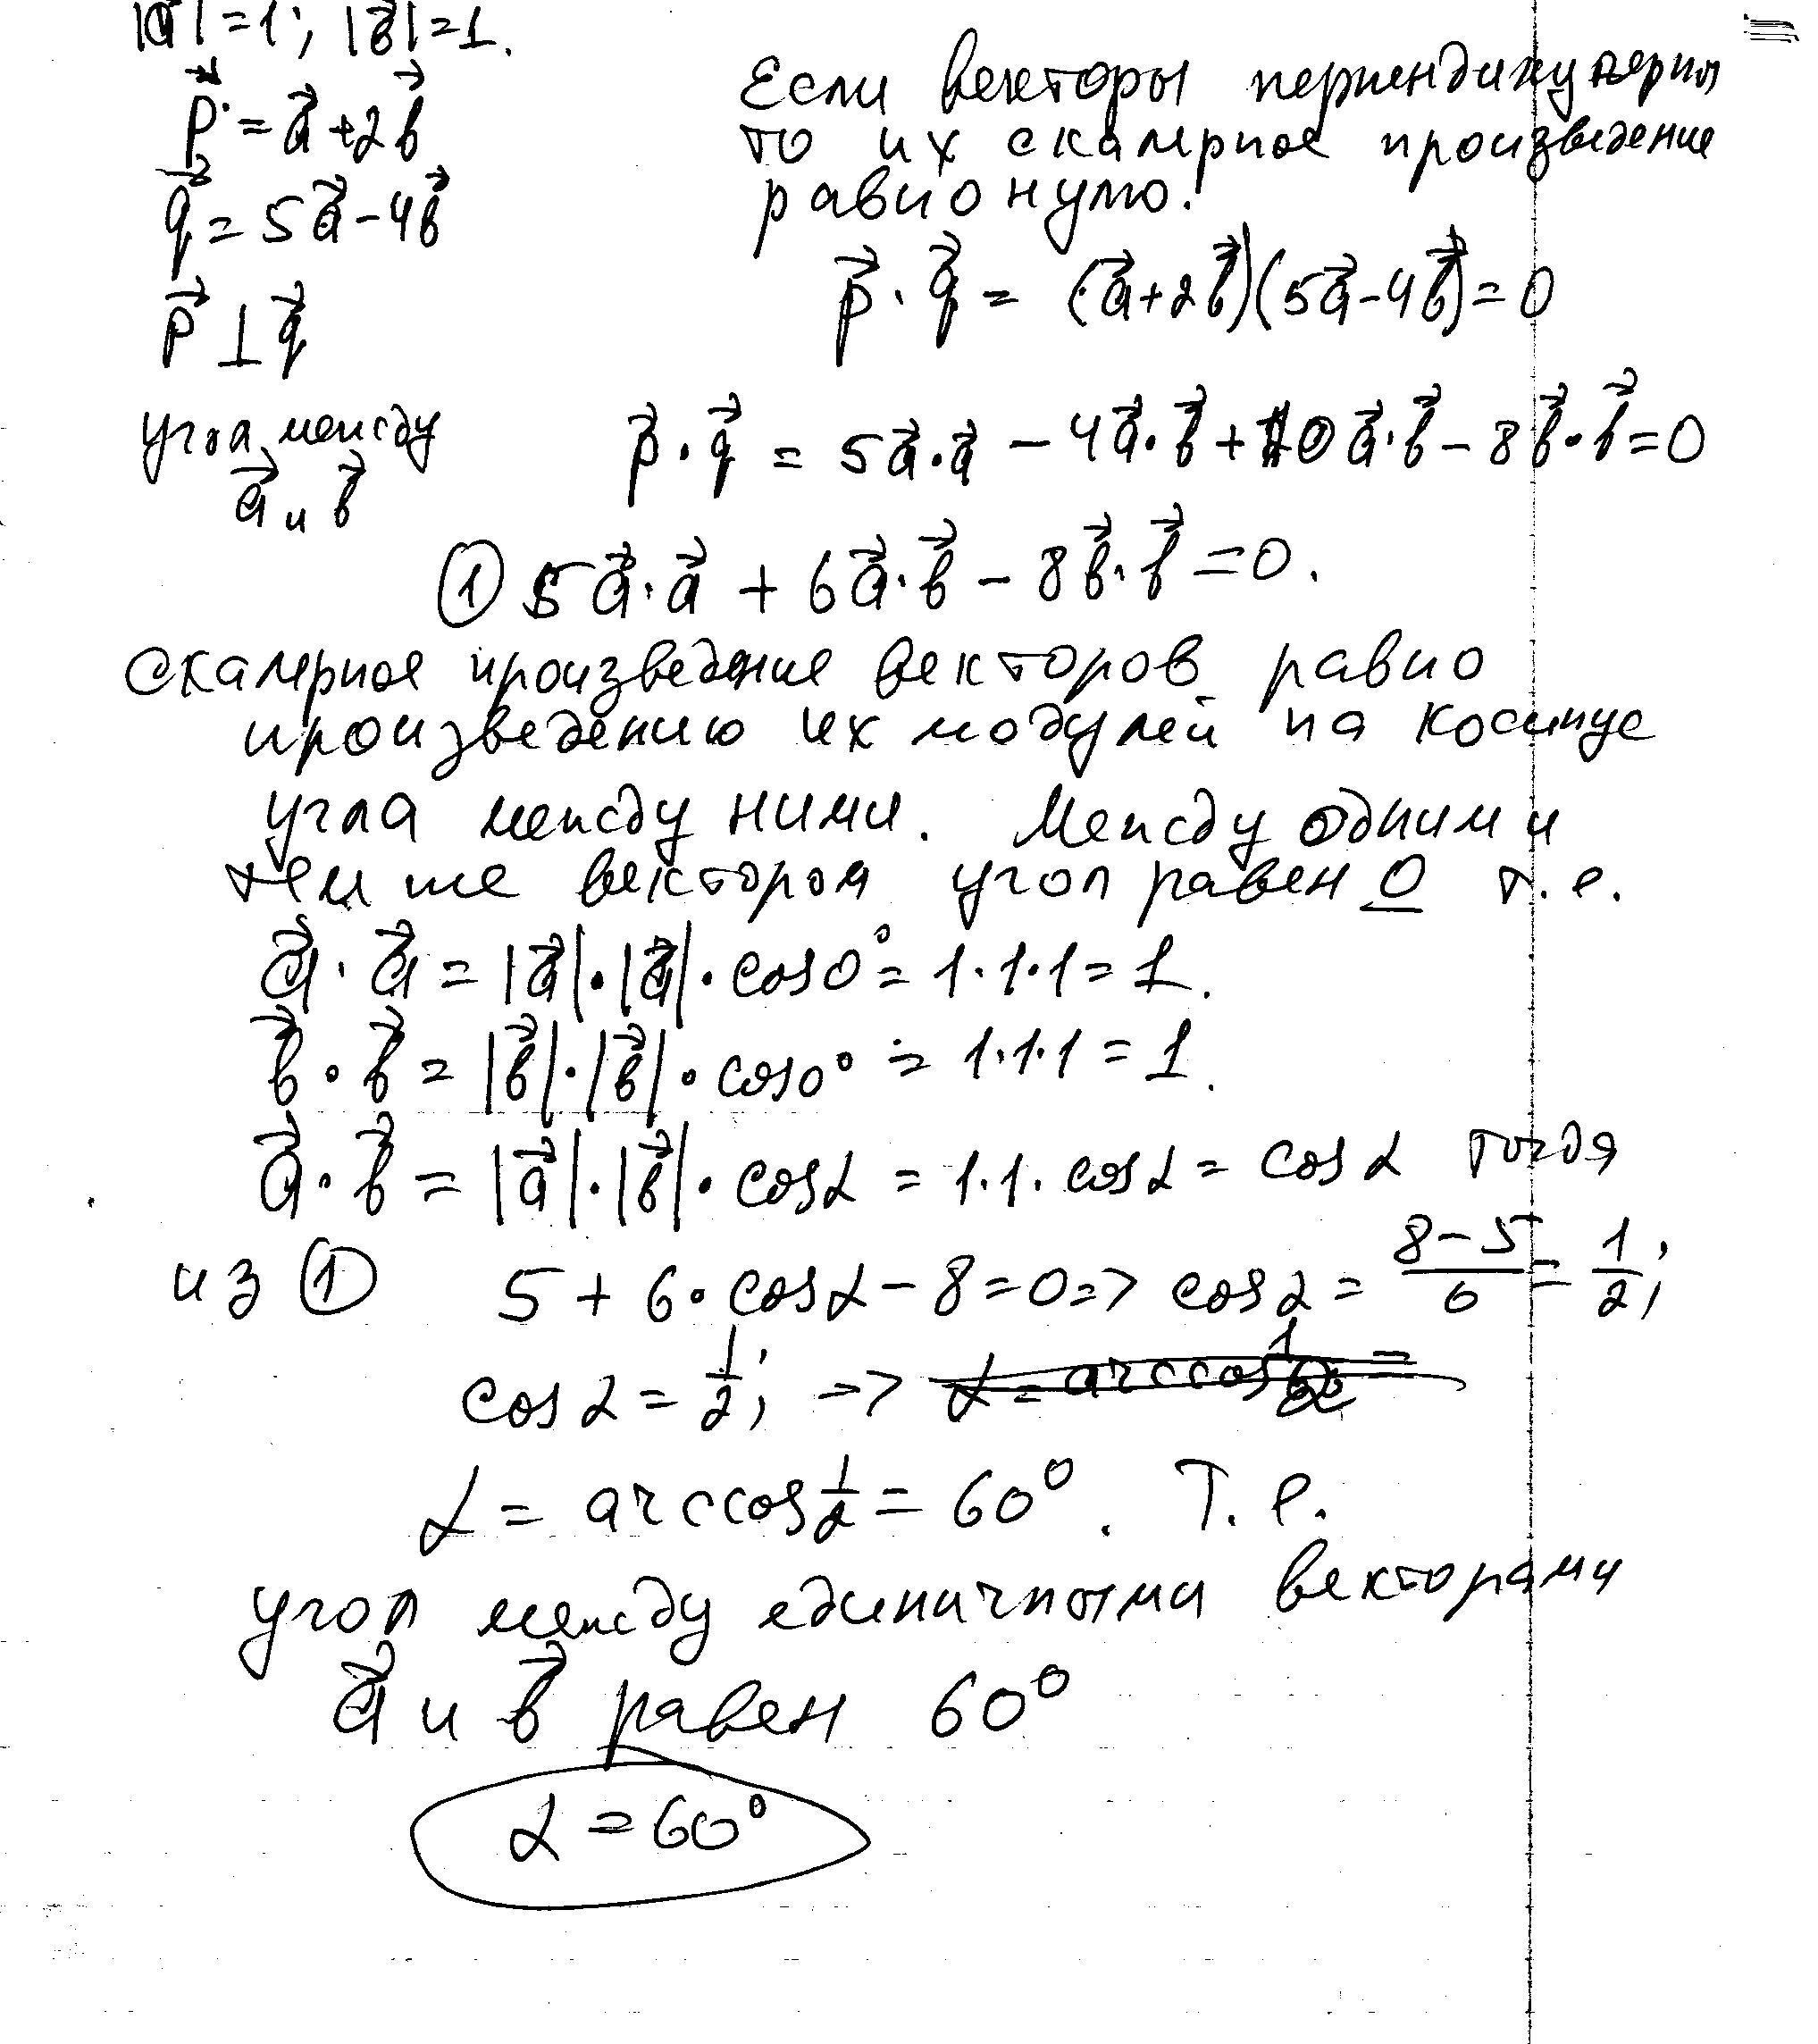 |a⃗| = 1; |b⃗| = 1.
p⃗ = a⃗ + 2b⃗
q⃗ = 5a⃗ - 4b⃗
p⃗ ⊥ q⃗
угол между
a⃗ и b⃗
Если векторы перпендикулярны
то их скалярное произведение
равно нулю.
p⃗ · q⃗ = (a⃗ + 2b⃗)(5a⃗ - 4b⃗) = 0
p⃗ · q⃗ = 5a⃗·a⃗ - 4a⃗·b⃗ + 10a⃗·b⃗ - 8b⃗·b⃗ = 0
① 5a⃗·a⃗ + 6a⃗·b⃗ - 8b⃗·b⃗ = 0.
Скалярное произведение векторов равно
произведению их модулей на косинус
угла между ними. Между одним и
тем же вектором угол равен 0 т.е.
a⃗ · a⃗ = |a⃗|·|a⃗|·cos0° = 1·1·1 = 1.
b⃗ · b⃗ = |b⃗|·|b⃗|·cos0° = 1·1·1 = 1.
a⃗ · b⃗ = |a⃗|·|b⃗|·cosα = 1·1·cosα = cosα тогда
из ① 5 + 6·cosα - 8 = 0 => cosα = (8-5)/6 = 1/2;
cosα = 1/2; => α = arccos 1/2 =
α = arccos 1/2 = 60°. Т.е.
угол между единичными векторами
a⃗ и b⃗ равен 60°
α = 60°